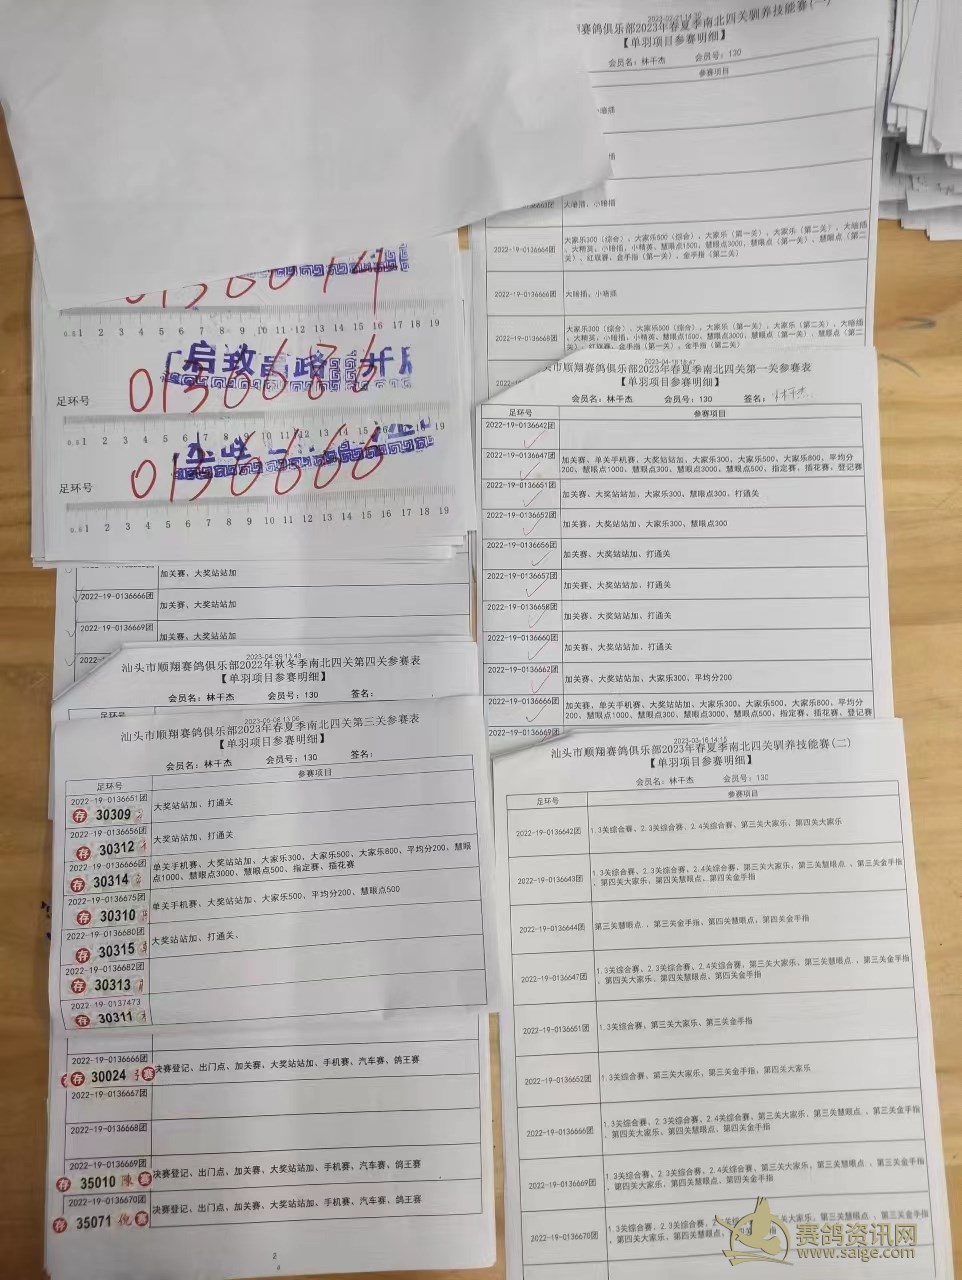 赛鸽俱乐部2023年春夏季南北四关驯养技能赛(一)
【单羽项目参赛明细】
会员名：林干杰 会员号：130
参赛项目
大暗插，小暗插
2022-19-0136664团
大家乐300（综合）、大家乐500（综合）、大家乐（第一关）、大家乐（第二关）、大暗插
、大精英、小暗插、小精英、慧眼点1500、慧眼点3000、慧眼点（第一关）、慧眼点（第二
关）、红旗赛、金手指（第一关）、金手指（第二关）
2022-19-0136666团 大暗插，小暗插
2022-19-0136669团
大家乐300（综合）、大家乐500（综合）、大家乐（第一关）、大家乐（第二关）、大暗插
0136674
0.51 2 3 4 5 6 7 8 9 10 11 12 13 14 15 16 17 18 19
足环号 0136676
0.51 2 3 4 5 6 7 8 9 10 11 12 13 14 15 16 17 18 19
足环号 0136666
0.51 2 3 4 5 6 7 8 9 10 11 12 13 14 15 16 17 18 19
加关赛、大奖站站加
2022-19-0136666团 加关赛、大奖站站加
2022-19-0136669团 加关赛、大奖站站加
市顺翔赛鸽俱乐部2023年春夏季南北四关第一关参赛表
【单羽项目参赛明细】
会员名：林干杰 会员号：130 签名：林干杰
足环号 参赛项目
2022-19-0136642团
2022-19-0136647团 加关赛、单关手机赛、大奖站站加、大家乐300、大家乐500、大家乐800、平均分
200、慧眼点1000、慧眼点300、慧眼点3000、慧眼点500、指定赛、插花赛、登记赛
2022-19-0136651团 加关赛、大奖站站加、大家乐300、慧眼点300、打通关
2022-19-0136652团 加关赛、大奖站站加、大家乐300、慧眼点300
2022-19-0136656团 加关赛、大奖站站加、打通关
2022-19-0136657团 加关赛、大奖站站加、打通关
2022-19-0136658团 加关赛、大奖站站加、打通关
2022-19-0136660团 加关赛、大奖站站加、打通关
2022-19-0136662团 加关赛、大奖站站加、大家乐300、平均分200
2022-19-0136666团 加关赛、单关手机赛、大奖站站加、大家乐300、大家乐500、大家乐800、平均分
200、慧眼点1000、慧眼点300、慧眼点3000、慧眼点500、指定赛、插花赛、登记赛
2022-19-0136669团
2023-04-09 13:43
汕头市顺翔赛鸽俱乐部2022年秋冬季南北四关第四关参赛表
【单羽项目参赛明细】
会员名：林干杰 会员号：130 签名：
足环号
2023-05-08 13:06
汕头市顺翔赛鸽俱乐部2023年春夏季南北四关第三关参赛表
【单羽项目参赛明细】
会员名：林干杰 会员号：130 签名：
足环号 参赛项目
2022-19-0136651团 大奖站站加、打通关
存 30309
2022-19-0136656团 大奖站站加、打通关
存 30312
2022-19-0136666团 单关手机赛、大奖站站加、大家乐300、大家乐500、大家乐800、平均分200、慧眼
存 30314 点1000、慧眼点3000、慧眼点500、指定赛、插花赛
2022-19-0136675团 单关手机赛、大奖站站加、大家乐500、平均分200、慧眼点500
存 30310
2022-19-0136680团 大奖站站加、打通关、
存 30315
2022-19-0136682团
存 30313
2022-19-0137473
存 30311
2022-19-0136666团 决赛登记、出门点、加关赛、大奖站站加、手机赛、汽车赛、鸽王赛
存 30024 赛
2022-19-0136667团
2022-19-0136668团
2022-19-0136669团 决赛登记、出门点、加关赛、大奖站站加、手机赛、汽车赛、鸽王赛
存 35010 陳 赛
2022-19-0136670团 决赛登记、出门点、加关赛、大奖站站加、手机赛、汽车赛、鸽王赛
存 35071 倪 赛
2
2023-03-16 14:15
汕头市顺翔赛鸽俱乐部2023年春夏季南北四关驯养技能赛(二)
【单羽项目参赛明细】
会员名：林干杰 会员号：130
足环号 参赛项目
2022-19-0136642团 1.3关综合赛、2.3关综合赛、2.4关综合赛、第三关大家乐，第四关大家乐
2022-19-0136643团 1.3关综合赛、2.3关综合赛、2.4关综合赛、第三关大家乐，第三关慧眼点，第三关金手指
、第四关大家乐、第四关慧眼点、第四关金手指
2022-19-0136644团 第三关慧眼点，第三关金手指，第四关慧眼点，第四关金手指
2022-19-0136647团 1.3关综合赛、2.3关综合赛、2.4关综合赛、第三关大家乐、第三关慧眼点，第三关金手指
、第四关大家乐、第四关慧眼点、第四关金手指
2022-19-0136651团 1.3关综合赛、第三关大家乐，第三关金手指
2022-19-0136652团 1.3关综合赛、第三关大家乐，第三关金手指，第四关大家乐
2022-19-0136666团 1.3关综合赛、2.3关综合赛、2.4关综合赛、第三关大家乐、第三关慧眼点、第三关金手指
、第四关大家乐、第四关慧眼点、第四关金手指
2022-19-0136669团 1.3关综合赛、2.3关综合赛、2.4关综合赛、第三关大家乐，第三关慧眼点，第三关金手指
、第四关大家乐、第四关慧眼点、第四关金手指
2022-19-0136670团 1.3关综合赛、2.3关综合赛
赛鸽资讯网
www.saige.com